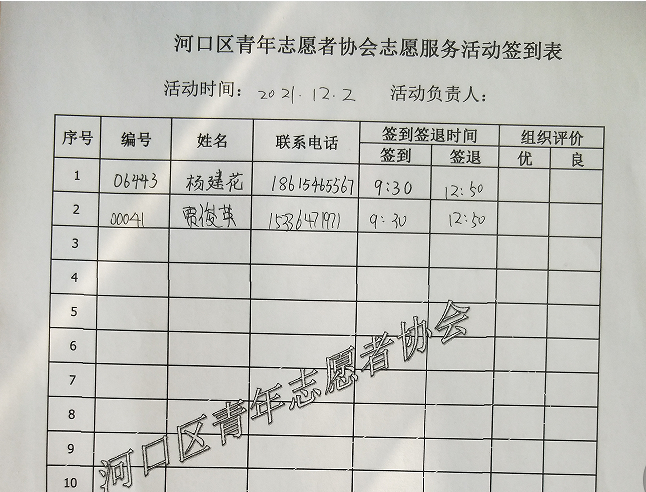 河口区青年志愿者协会志愿服务活动签到表
活动时间： 2021.12.2 活动负责人：
序号 编号 姓名 联系电话 签到签退时间 组织评价
签到 签退 优 良
1 06443 杨建花 18615465567 9:30 12:50
2 00041 贾俊英 15336471971 9:30 12:50
3
4
5
6
7
8
9
10
河口区青年志愿者协会